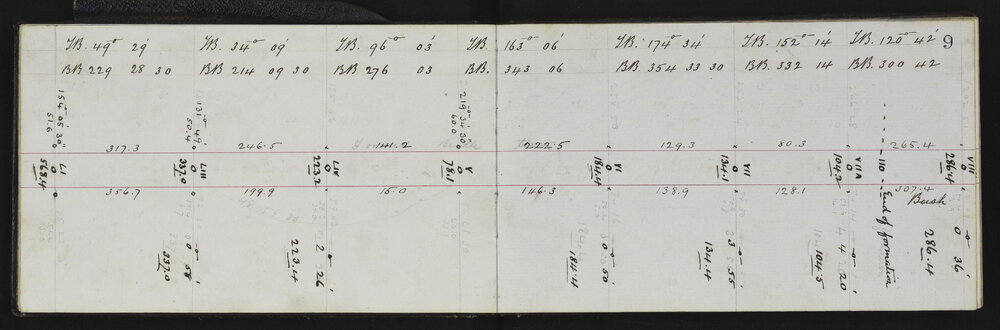 9
F.B. 49° 29' F.B. 34° 09' F.B. 96° 03' F.B. 163° 06' F.B. 174° 34' F.B. 152° 14' F.B. 120° 42'
BB 229 28 30 BB 214 09 30 BB 276 03 BB. 343 06 BB. 354 33 30 BB. 332 14 BB. 300 42
154° 05' 30"
51.6
131° 49'
50.4
219° 34' 30"
60.0
317.3 246.5 141.2 222.5 129.3 80.3 265.4
LI
0
568.4
LIII
0
337.0
LIV
0
223.2
V
0
78.1
VI
0
184.4
VII
0
134.1
VIIA
0
104.2
110 End of formation
VIII
0
286.4
356.7 199.9 15.0 146.3 138.9 128.1 307.4
Bush
337.0
2° 26'
223.4
0° 50'
184.4
3° 55'
134.4
4° 20'
104.5
0° 36'
286.4